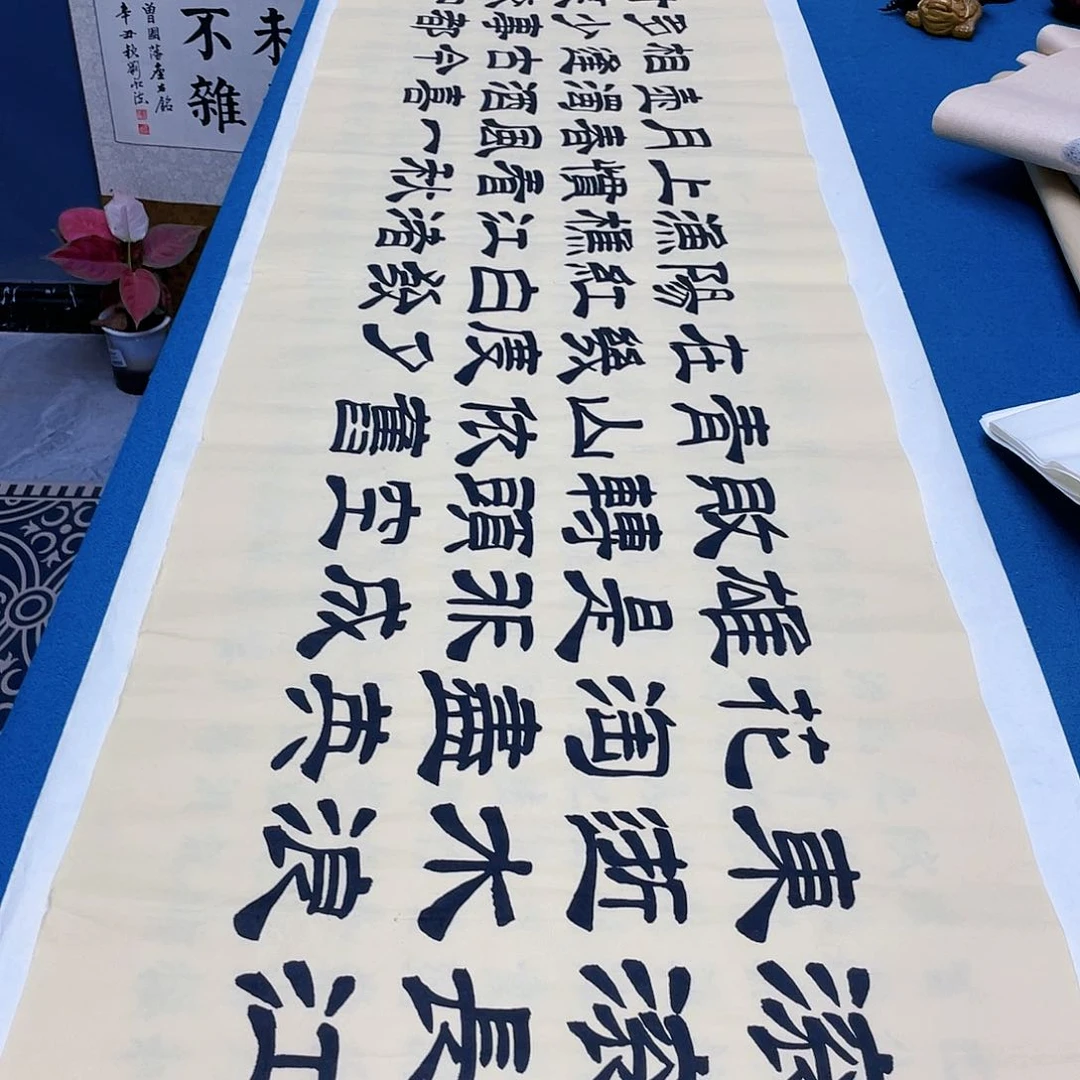 滾滾長江
東逝水浪
花淘盡英
雄是非成
敗轉頭空
青山依舊
在幾度夕
陽紅白發
漁樵江渚
上慣看秋
月春風一
壺濁酒喜
相逢古今
多少事都
未
不雜
曾國藩座右銘
辛丑秋劉